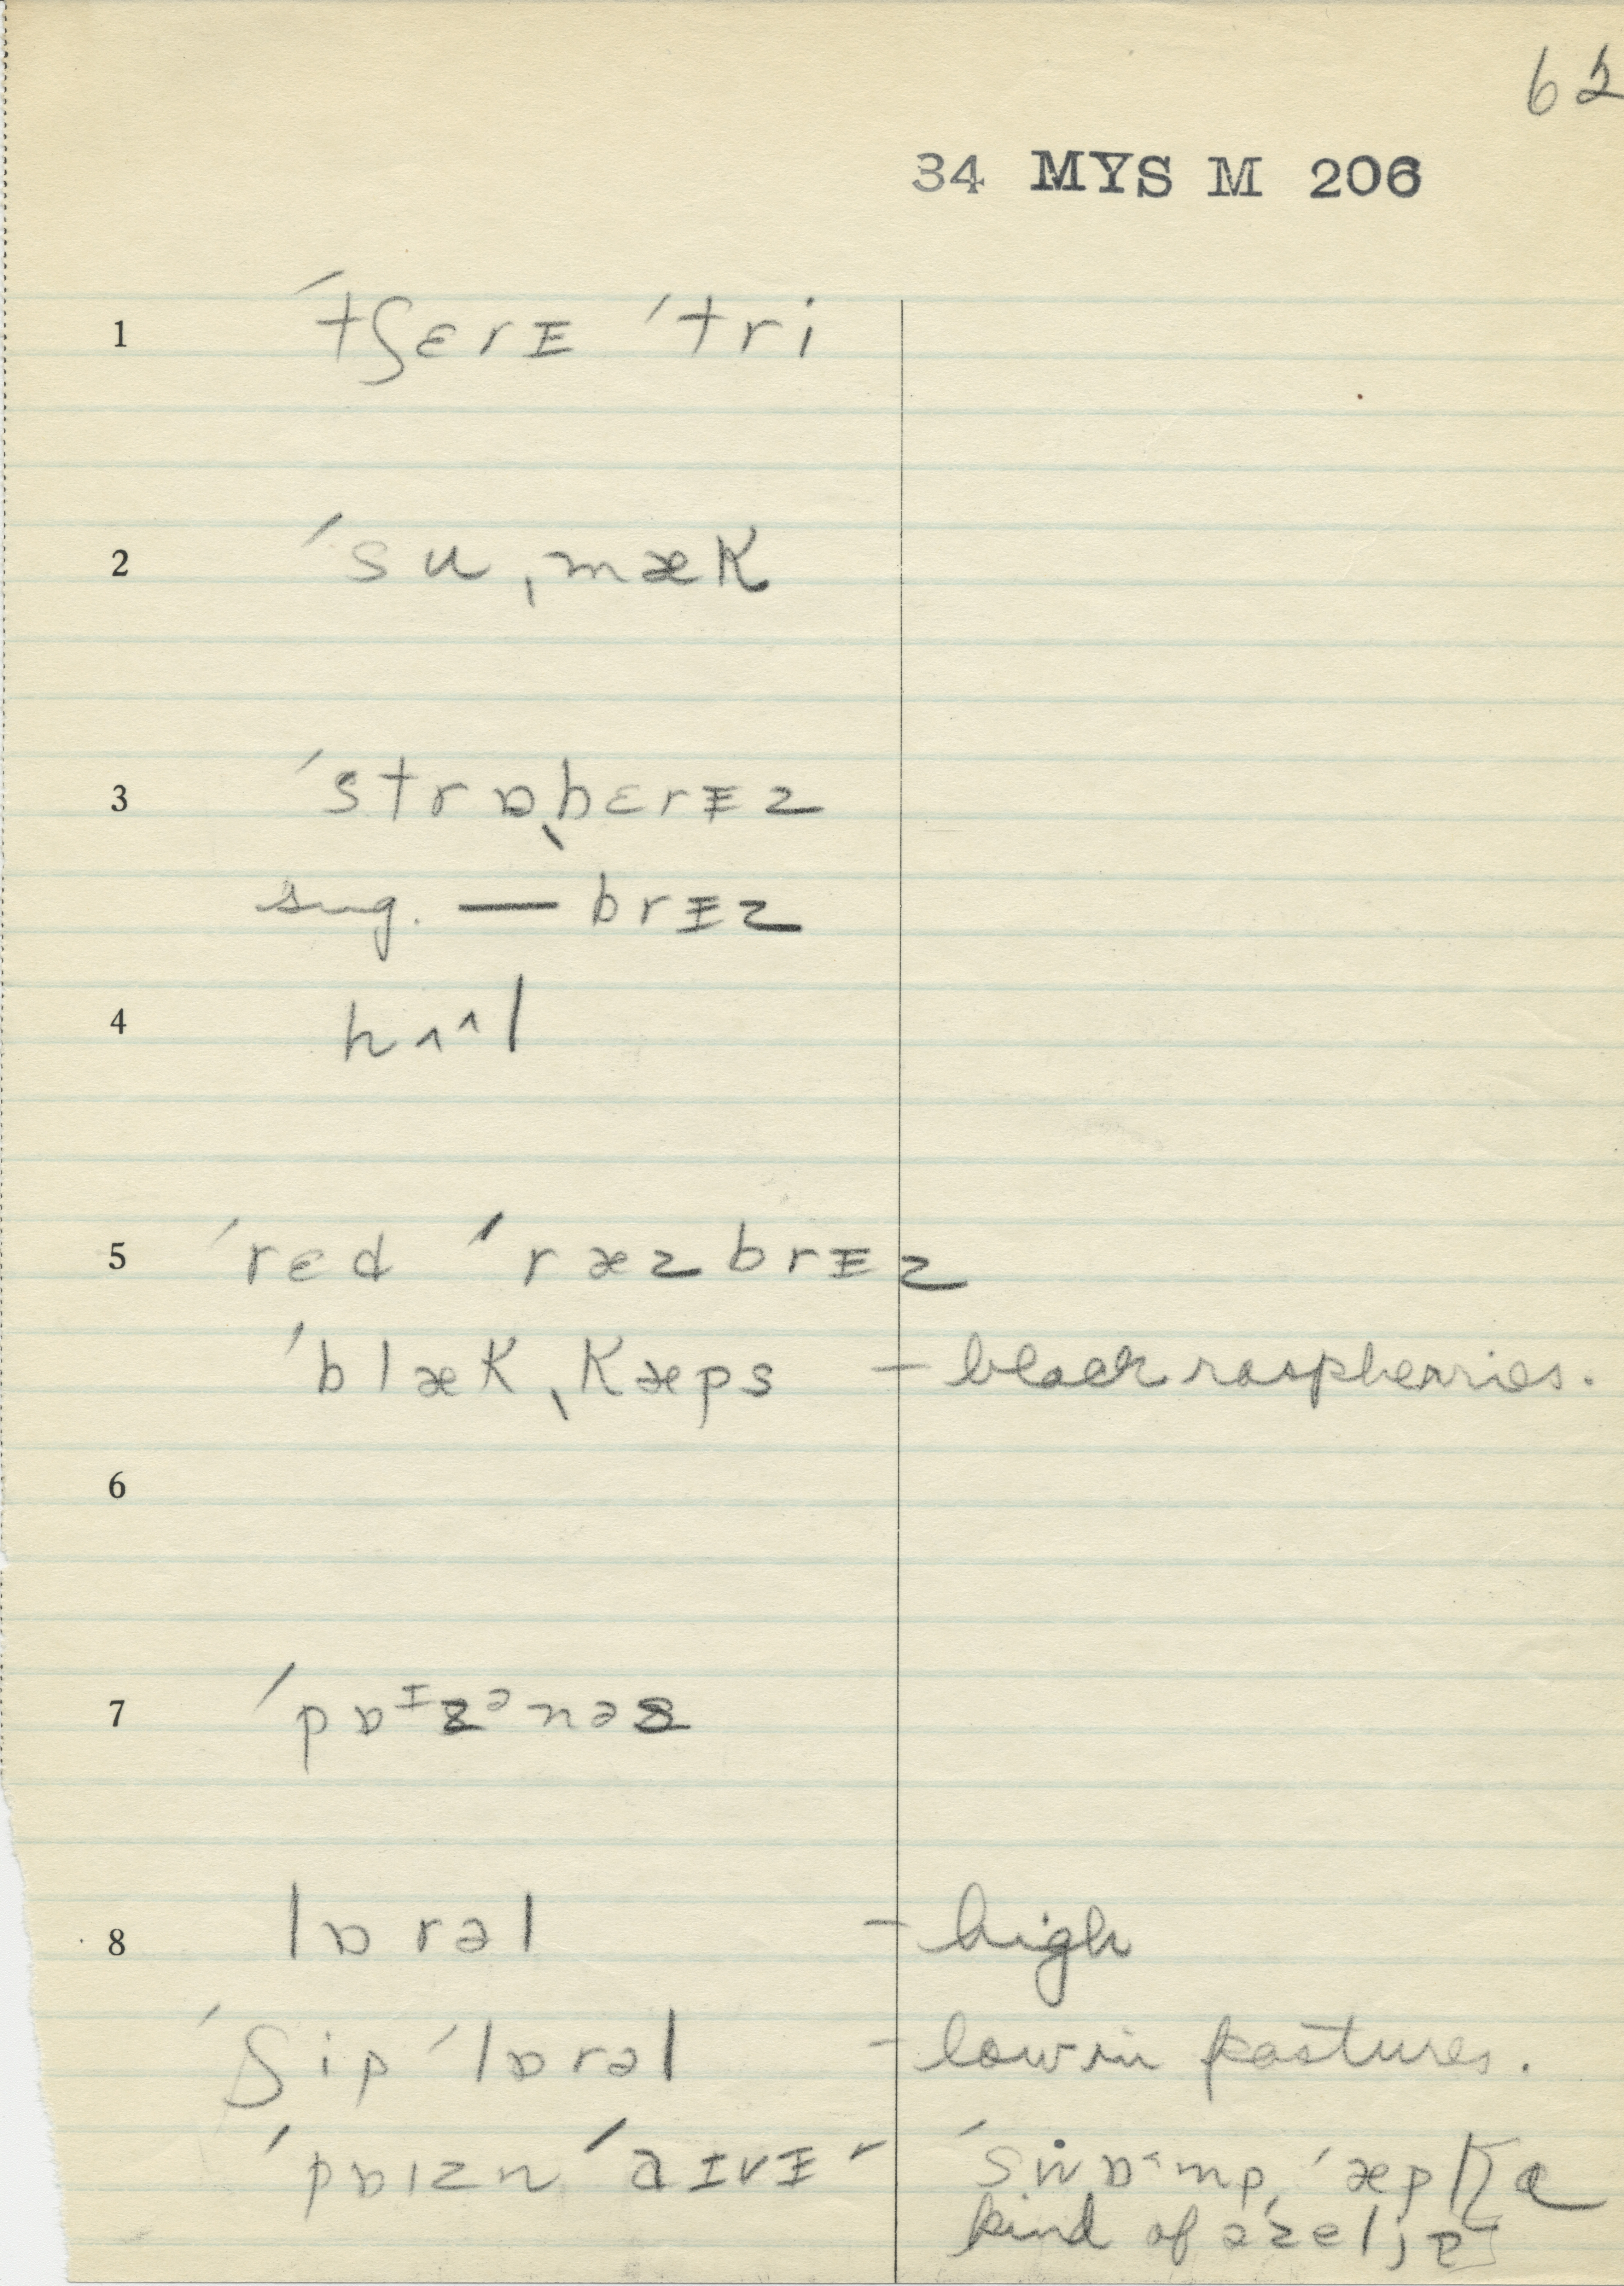 62
34 MYS M 206
1 ˊtʃɛrɪ ˊtri
2 ˊsuˌmæk
3 ˊstrɒˌbɛrɪz
sug. — brɪz
4 hʌ^l
5 ˊrɛd ˊræzbrɪz
ˊblæk ˌkæps – black raspberries.
6
7 ˊpɒᶦzᵊnəs
8 lɒrəl – high
ˊʃip ˊlɒrəl – low in pastures.
ˊpɒɪzn ˊaɪvɪ – ˊswɒmp, ˊæp
kind of əzeljə]